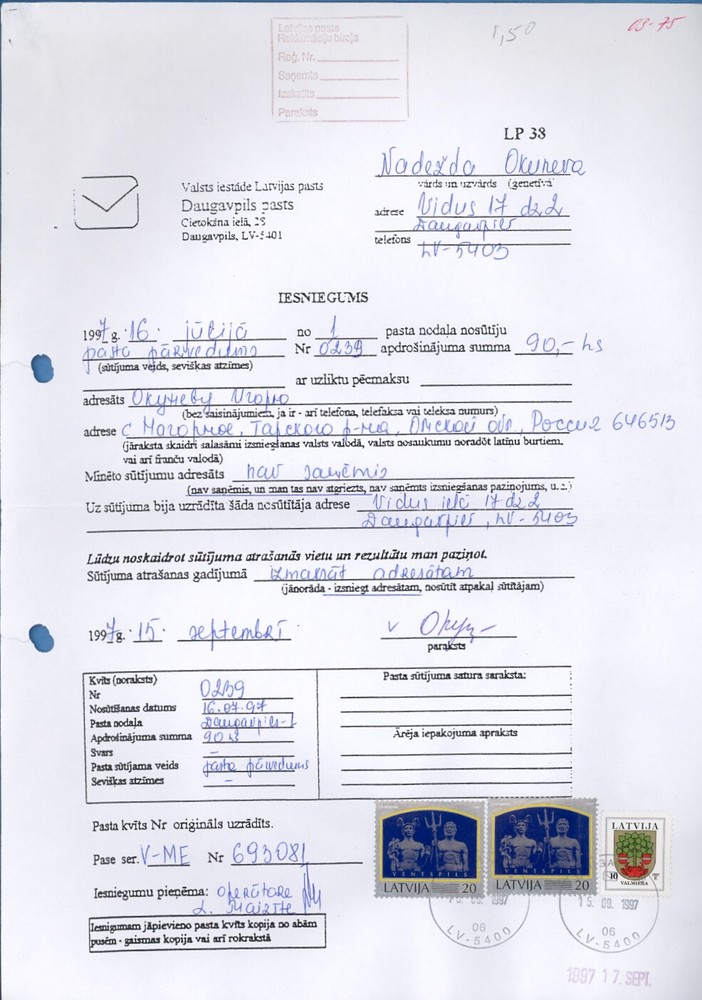 Latvijas pasts
Reklamāciju birojs
Reģ. Nr.
Saņemts
Izskatīts
Paraksts
1,50
03-75
LP 38
Nadežda Okuneva
vārds un uzvārds (ģenetīvā
Valsts iestāde Latvijas pasts
Daugavpils pasts
Cietokšņa ielā, 28
Daugavpils, LV-5401
adrese Vidus 17 dz 2
Daugavpils
telefons LV-5403
IESNIEGUMS
1997 g. 16. jūlijā no 1 pasta nodaļa nosūtīju
pasta pārvedums Nr 0239 apdrošinājuma summa 90,- Ls
(sūtījuma veids, sevišķas atzīmes)
ar uzliktu pēcmaksu
adresāts Окуневу Игорю
(bez saīsinājumiem, ja ir - arī telefona, telefaksa vai teleksa numurs)
adrese с Нагорное, Тарского р-на, Омской обл, Россия 646513
(jāraksta skaidri salasāmi izsniegšanas valsts valodā, valsts nosaukumu norādot latīņu burtiem.
vai arī franču valodā)
Minēto sūtījumu adresāts nav saņēmis
(nav saņēmis, un man tas nav atgriezts, nav saņēmts izsniegšanas paziņojums, u.c.)
Uz sūtījuma bija uzrādīta šāda nosūtītāja adrese Vidus ielā 17 dz 2
Daugavpils, LV-5403
Lūdzu noskaidrot sūtījuma atrašanās vietu un rezultātu man paziņot.
Sūtījuma atrašanas gadījumā izmaksāt adresātam
(jānorāda - izsniegt adresātam, nosūtīt atpakaļ sūtītājam)
1997g. 15. septembrī v
paraksts
Kvīts (noraksts)
Nr 0239
Nosūtīšanas datums 16.07.97
Pasta nodaļa Daugavpils-1
Apdrošinājuma summa 90 Ls
Svars –
Pasta sūtījuma veids pasta pārvedums
Sevišķas atzīmes –
Pasta sūtījuma satura saraksts:
Ārēja iepakojuma apraksts
Pasta kvīts Nr oriģināls uzrādīts.
Pase ser. V-ME Nr 693081
Iesniegumu pieņēma: operātore
Iesnigumam jāpievieno pasta kvīts kopija no abām
pusēm - gaismas kopija vai arī rokrakstā
VENTSPILS
LATVIJA 20
VENTSPILS
LATVIJA 20
LATVIJA
10
VALMIERA
15. 09. 1997
06
LV-5400
15. 09. 1997
06
LV-5400
1997 17. SEPT.